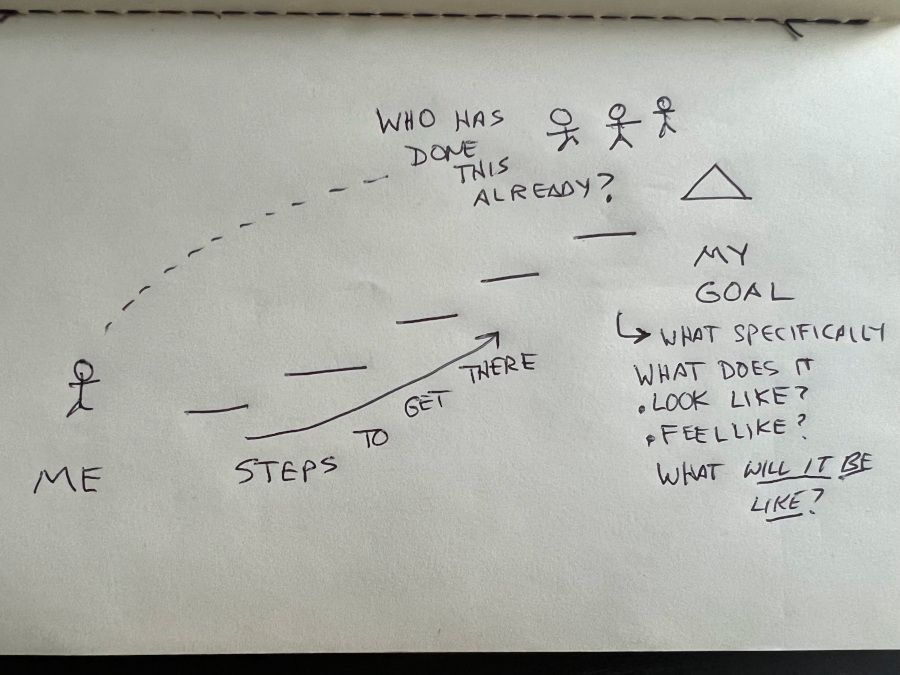 WHO HAS
DONE
THIS
ALREADY?
MY
GOAL
↳ WHAT SPECIFICALLY
WHAT DOES IT
• LOOK LIKE?
• FEEL LIKE?
WHAT WILL IT BE
LIKE?
ME
STEPS TO GET THERE